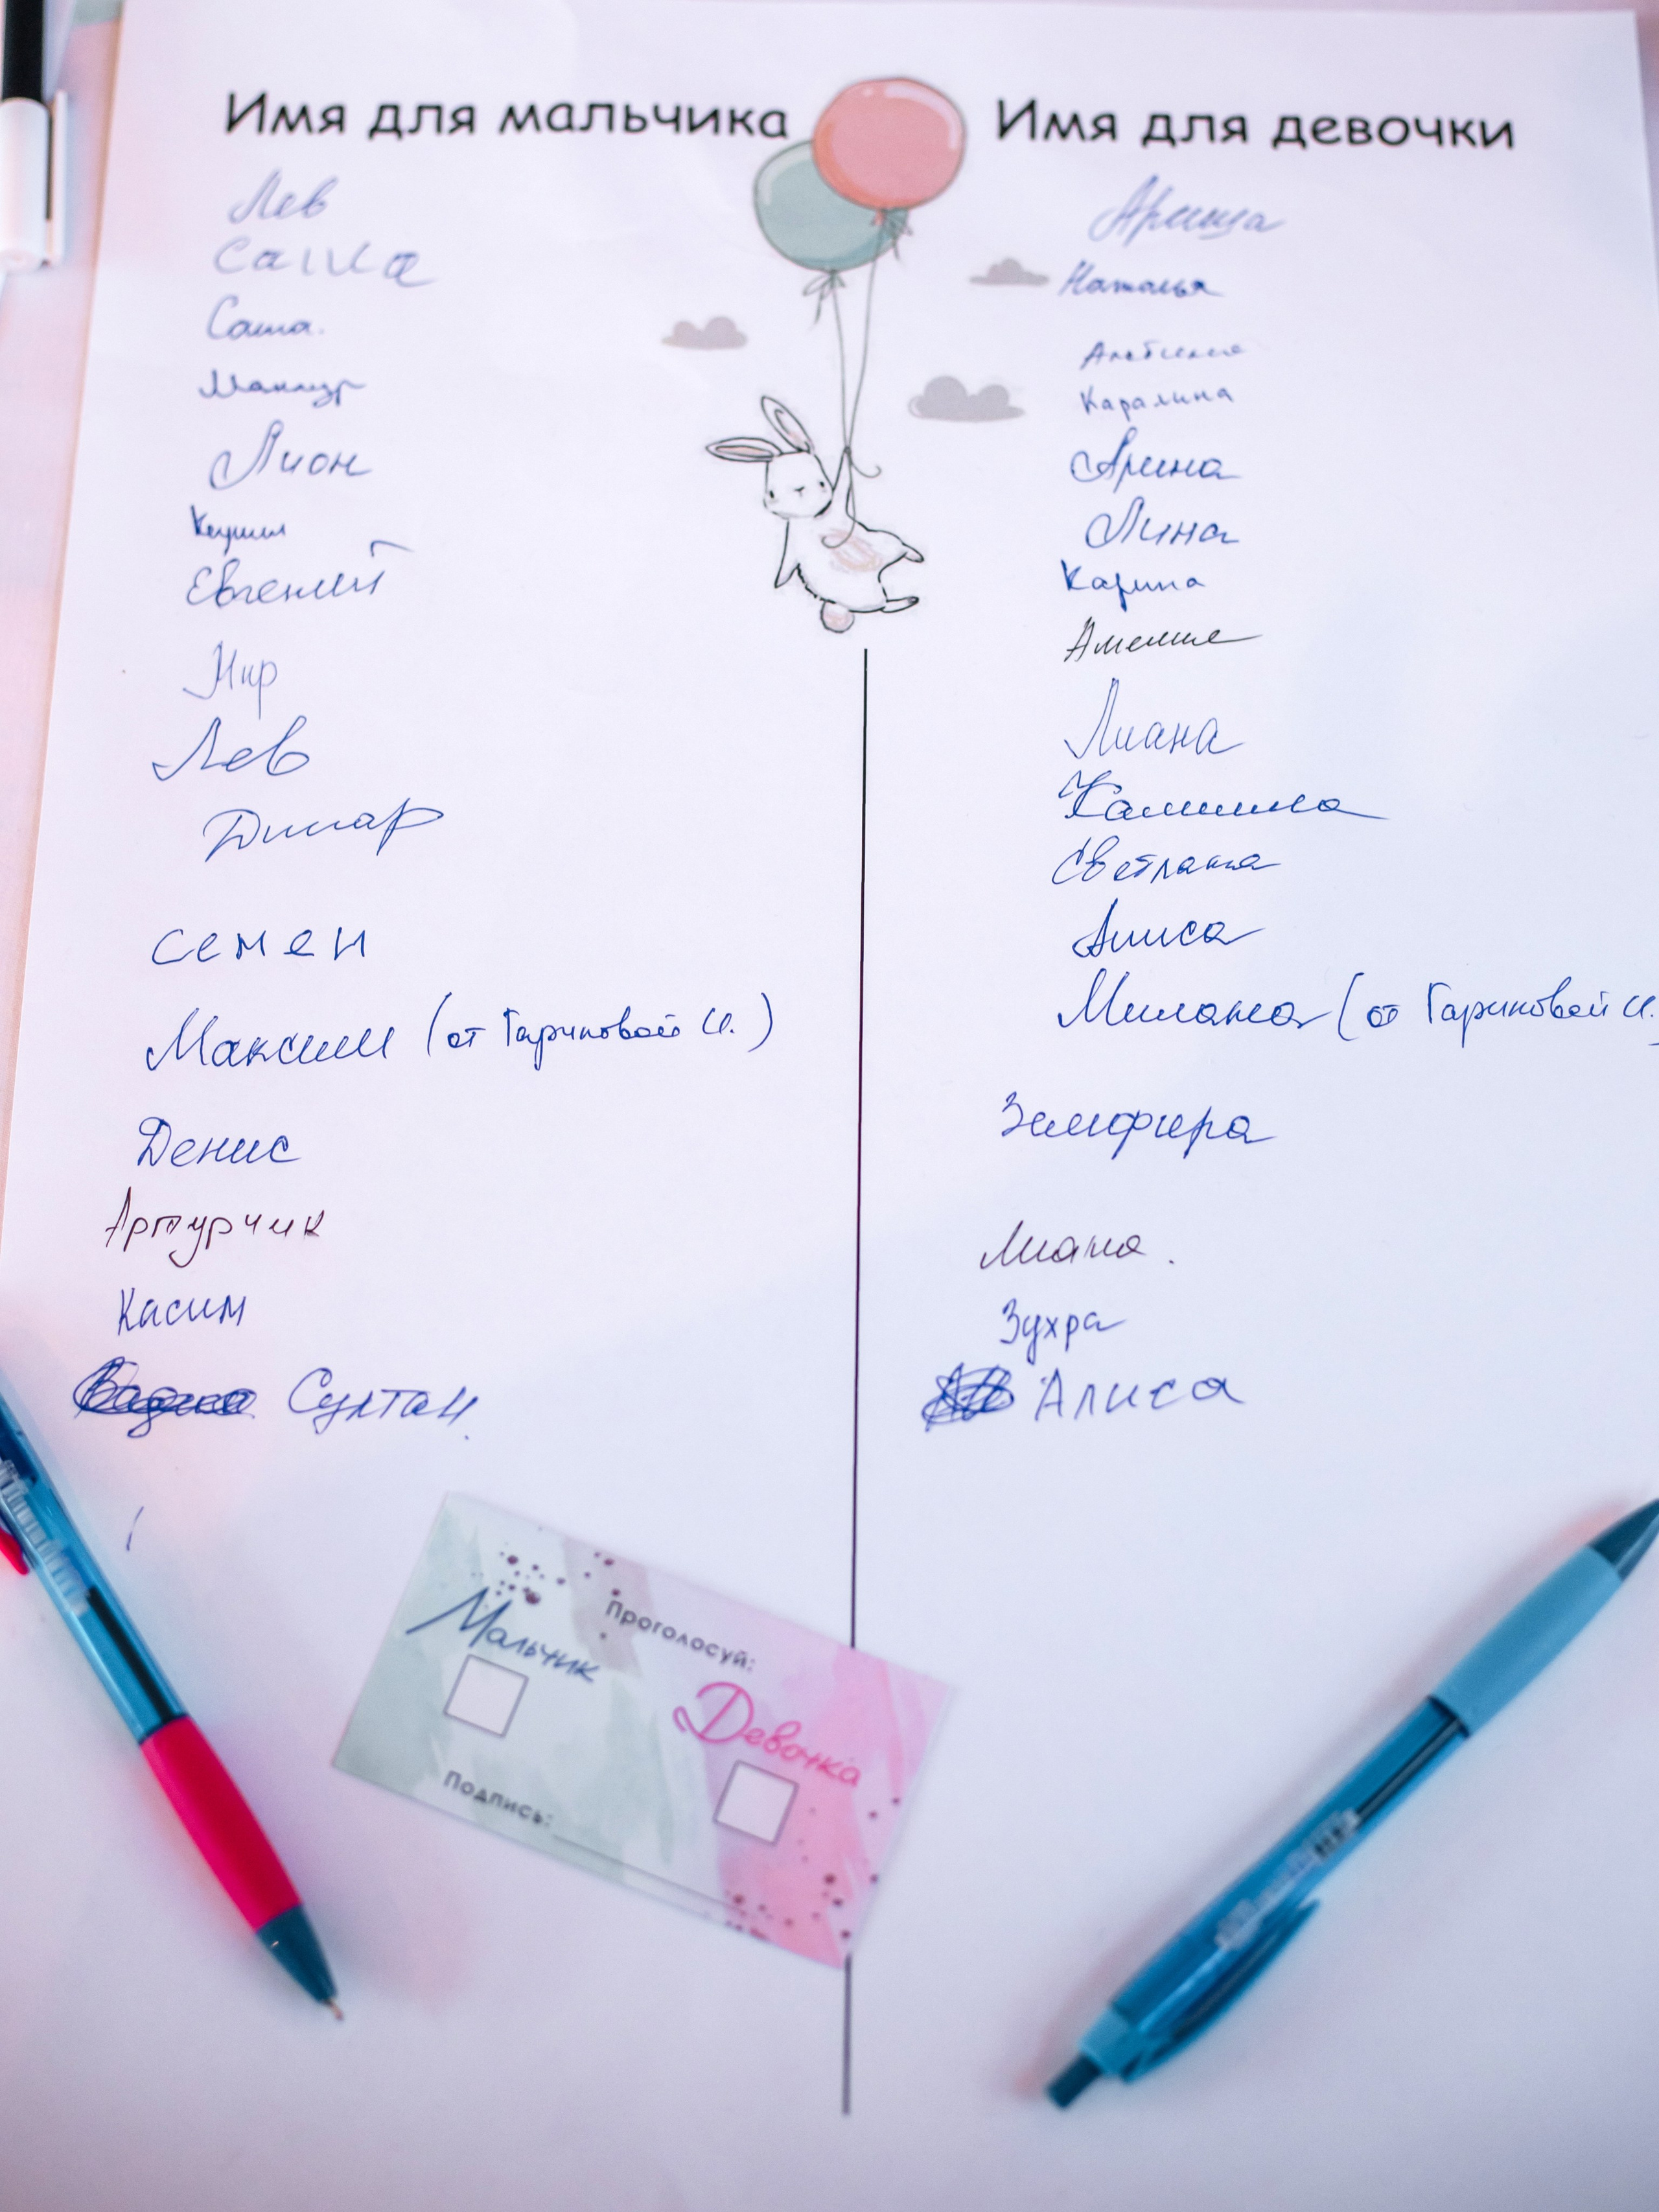 Имя для мальчика
Лев
Сашка
Саша.
Мансур
Лион
Евгений
Лев
Динар
Семен
Максим (от Гариповой И.)
Денис
Артурчик
Касим
Султан.
Имя для девочки
Ариша
Наталья
Каралина
Арина
Лина
Карина
Амелие
Лиана
Камилла
Светлана
Алиса
Милана (от Гариповой И.
Земфира
Лиана.
Зухра
Алиса
Проголосуй:
Мальчик
Девочка
Подпись: